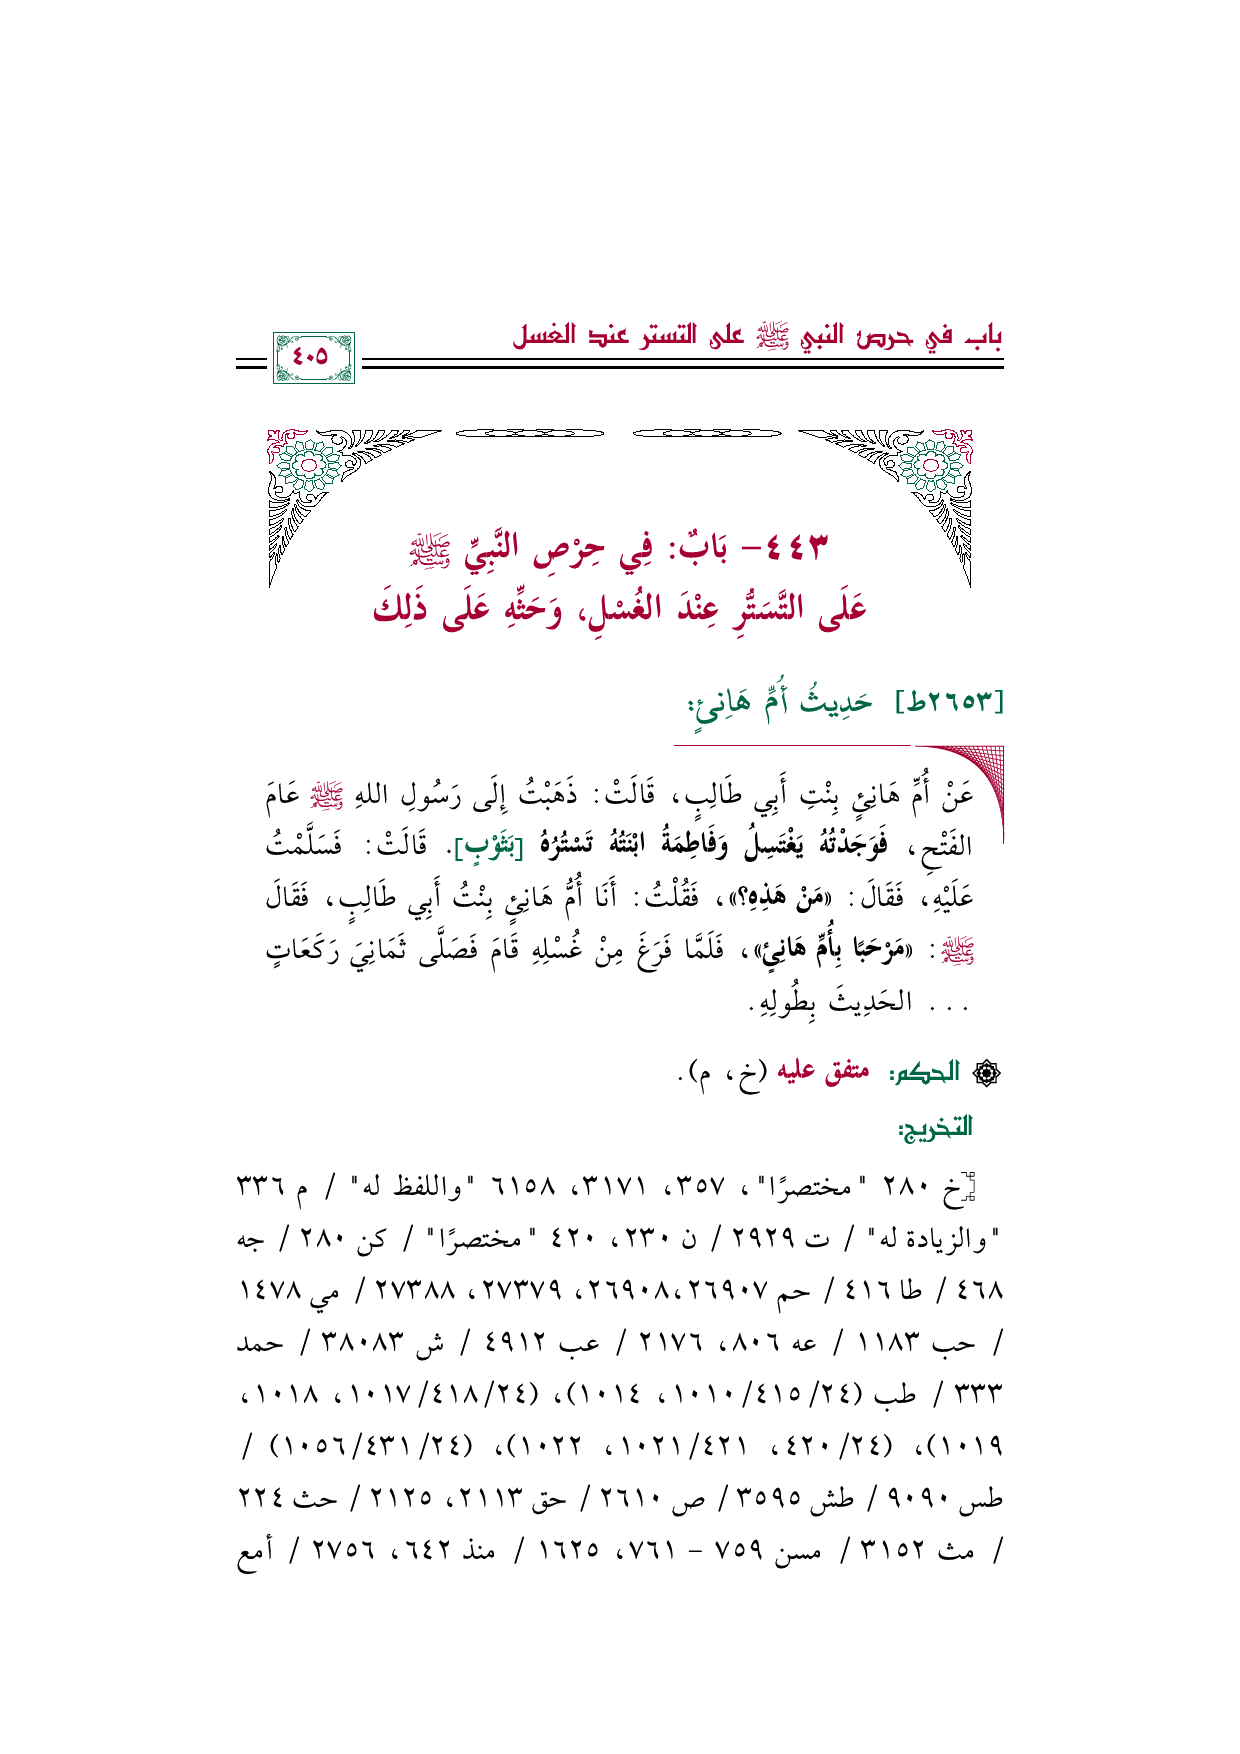 باب في حرص النبي ﷺ على التستر عند الغسل
٤٠٥
٤٤٣- بَابٌ: فِي حِرْصِ النَّبِيِّ ﷺ
عَلَى التَّسَتُّرِ عِنْدَ الغُسْلِ، وَحَثِّهِ عَلَى ذَلِكَ
[٢٦٥٣ط] حَدِيثُ أُمِّ هَانِئٍ:
عَنْ أُمِّ هَانِئٍ بِنْتِ أَبِي طَالِبٍ، قَالَتْ: ذَهَبْتُ إِلَى رَسُولِ اللهِ ﷺ عَامَ
الفَتْحِ، فَوَجَدْتُهُ يَغْتَسِلُ وَفَاطِمَةُ ابْنَتُهُ تَسْتُرُهُ [بَثَوْبٍ]. قَالَتْ: فَسَلَّمْتُ
عَلَيْهِ، فَقَالَ: «مَنْ هَذِهِ؟»، فَقُلْتُ: أَنَا أُمُّ هَانِئٍ بِنْتُ أَبِي طَالِبٍ، فَقَالَ
ﷺ: «مَرْحَبًا بِأُمِّ هَانِئٍ»، فَلَمَّا فَرَغَ مِنْ غُسْلِهِ قَامَ فَصَلَّى ثَمَانِيَ رَكَعَاتٍ
... الحَدِيثَ بِطُولِهِ.
الحكم: متفق عليه (خ، م).
التخريج:
[خ ٢٨٠ "مختصرًا"، ٣٥٧، ٣١٧١، ٦١٥٨ "واللفظ له" / م ٣٣٦
"والزيادة له" / ت ٢٩٢٩ / ن ٢٣٠، ٤٢٠ "مختصرًا" / كن ٢٨٠ / جه
٤٦٨ / طا ٤١٦ / حم ٢٦٩٠٧،٢٦٩٠٨، ٢٧٣٧٩، ٢٧٣٨٨ / مي ١٤٧٨
/ حب ١١٨٣ / عه ٨٠٦، ٢١٧٦ / عب ٤٩١٢ / ش ٣٨٠٨٣ / حمد
٣٣٣ / طب (٢٤/ ٤١٥/ ١٠١٠، ١٠١٤)، (٢٤/ ٤١٨/ ١٠١٧، ١٠١٨،
١٠١٩)، (٢٤/ ٤٢٠، ٤٢١/ ١٠٢١، ١٠٢٢)، (٢٤/ ٤٣١/ ١٠٥٦) /
طس ٩٠٩٠ / طش ٣٥٩٥ / ص ٢٦١٠ / حق ٢١١٣، ٢١٢٥ / حث ٢٢٤
/ مث ٣١٥٢ / مسن ٧٥٩ - ٧٦١، ١٦٢٥ / منذ ٦٤٢، ٢٧٥٦ / أمع